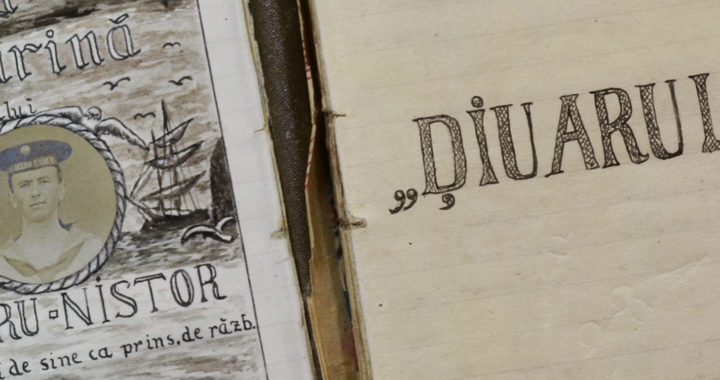 rină
lui
RU-NISTOR
i de sine ca prins.de răzb.
„ḐİUARUL